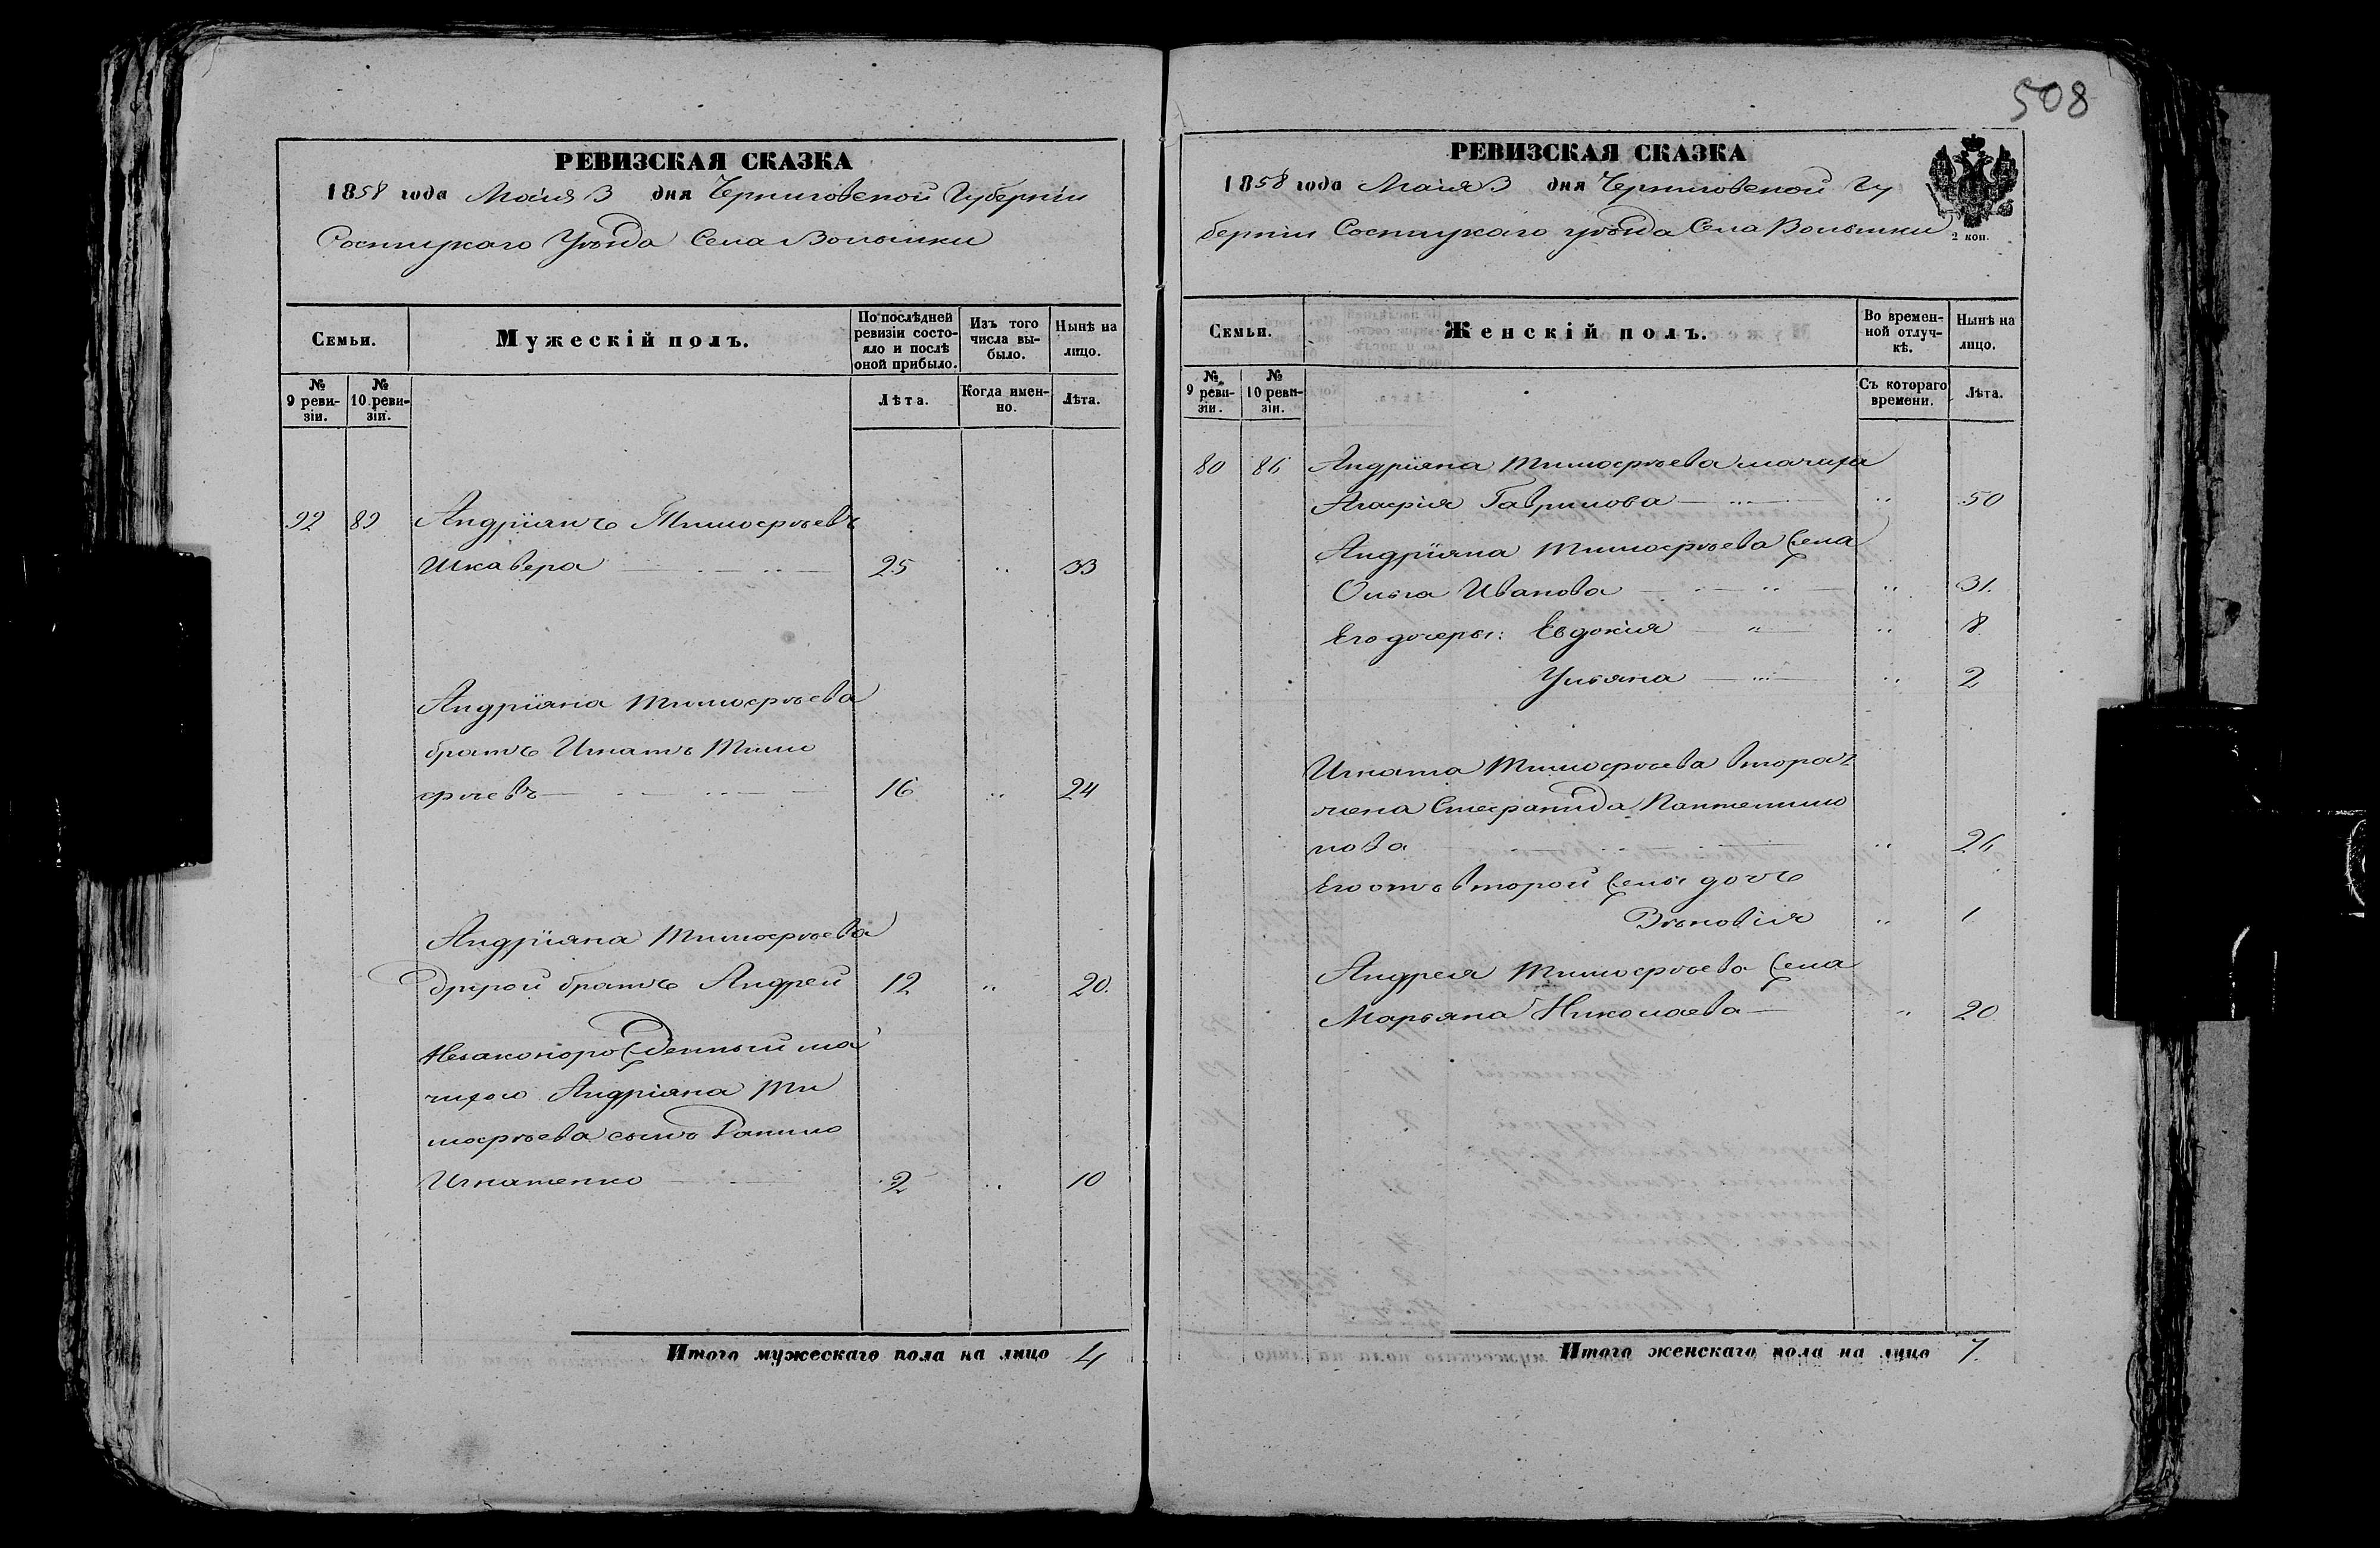 508
РЕВИЗСКАЯ СКАЗКА
1858 года Маія 3 дня Черниговской Губерніи
Сосницкаго Уѣзда Села Волынки
Семьи.
Мужескій полъ.
По послѣдней ревизіи состояло и послѣ оной прибыло.
Изъ того числа выбыло.
Нынѣ на лицо.
№ 9 ревизіи.
№ 10 ревизіи.
Лѣта.
Когда именно.
Лѣта.
92 89 Андріянъ Тимофѣевъ
Шкавера 25 " 33
Андріяна Тимофѣева
братъ Игнатъ Тимо
фѣевъ 16 " 24
Андріяна Тимофѣева
другой братъ Андрей 12 " 20.
Незаконорожденный ма
чихою Андріяна Ти
мофѣева сынъ Данило
Игнатенко 2 " 10
Итого мужескаго пола на лицо 4
РЕВИЗСКАЯ СКАЗКА
1858 года Маія 3 дня Черниговской Гу
берніи Сосницкаго уѣзда Села Волынки
2 коп.
Семьи.
Женскій полъ.
Во временной отлучкѣ.
Нынѣ на лицо.
№ 9 ревизіи.
№ 10 ревизіи.
Съ котораго времени.
Лѣта.
80 86 Андріяна Тимофѣева мачиха
Агафія Гаврилова " 50
Андріяна Тимофѣева жена
Ольга Иванова " 31.
Его дочеры: Евдокія " 8.
Ульяна " 2
Игната Тимофѣева втора
жена Стефанида Пантелимо
нова " 26
Его отъ второй жены дочь
Зѣновія " 1
Андрея Тимофѣева жена
Марьяна Николаева " 20.
Итого женскаго пола на лицо 7.